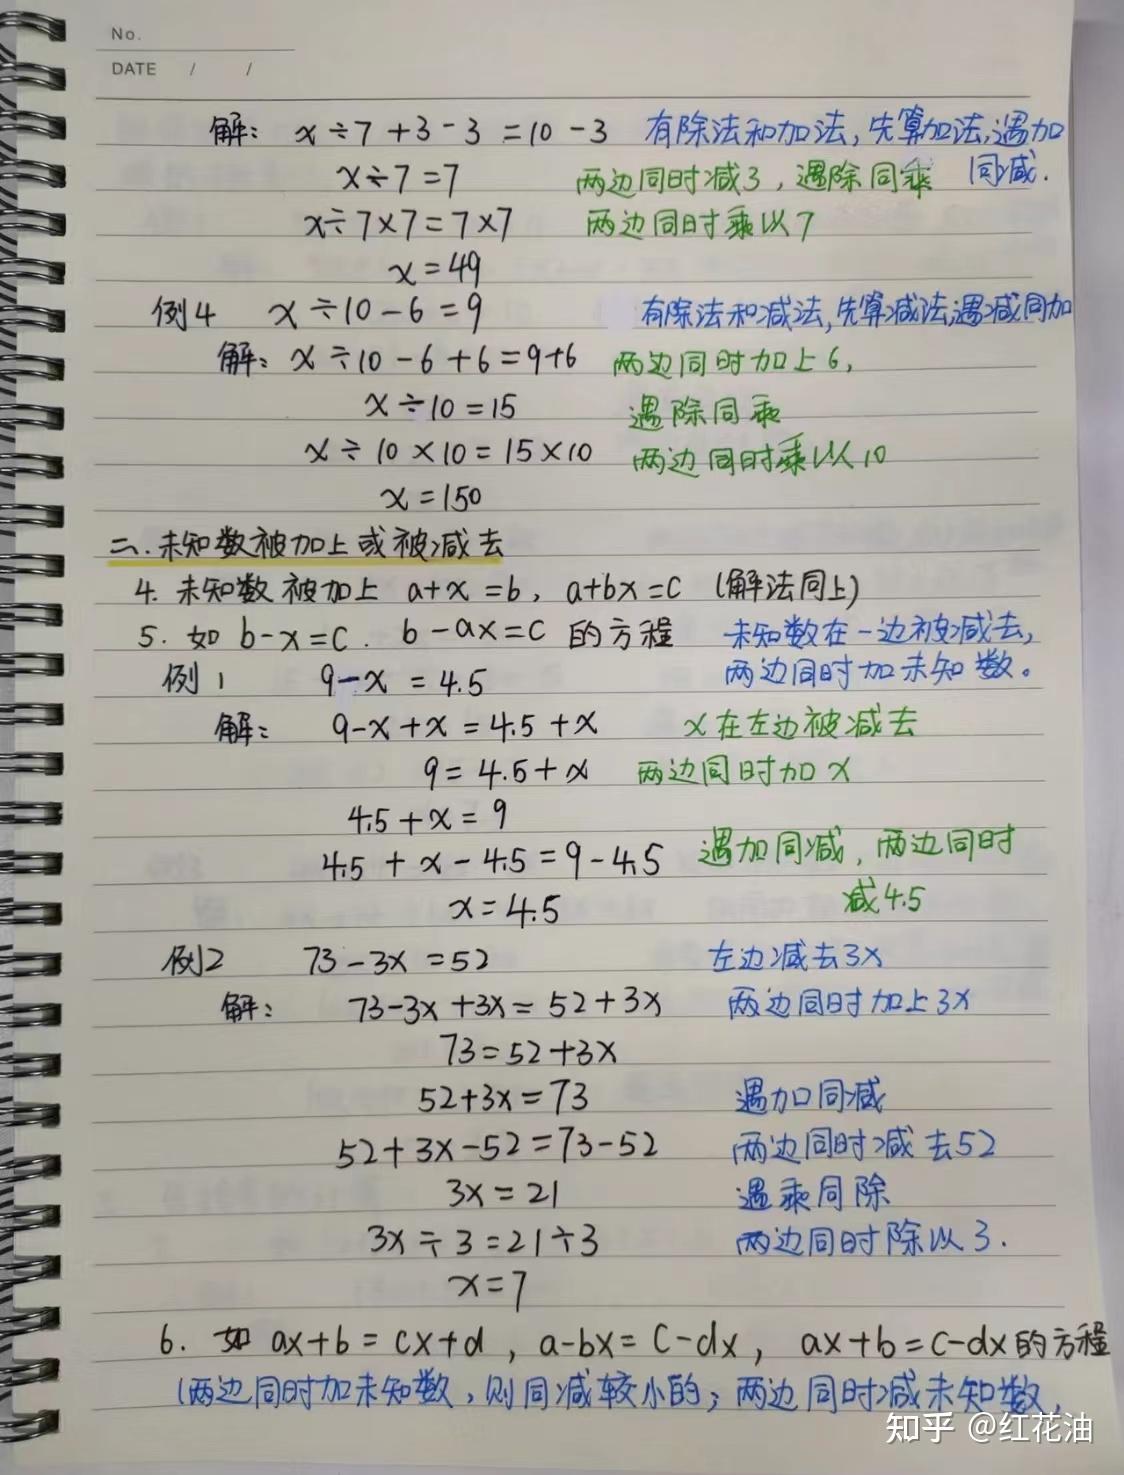 No.
DATE / /
解: x÷7+3-3=10-3 有除法和加法,先算加法,遇加同减.
x÷7=7 两边同时减3,遇除同乘
x÷7×7=7×7 两边同时乘以7
x=49
例4 x÷10-6=9 有除法和减法,先算减法,遇减同加
解: x÷10-6+6=9+6 两边同时加上6,
x÷10=15 遇除同乘
x÷10×10=15×10 两边同时乘以10
x=150
二.未知数被加上或被减去
4. 未知数被加上 a+x=b, a+bx=c (解法同上)
5. 如 b-x=c. b-ax=c 的方程 未知数在一边被减去,
例1 9-x=4.5 两边同时加未知数。
解: 9-x+x=4.5+x x在左边被减去
9=4.5+x 两边同时加x
4.5+x=9
4.5+x-4.5=9-4.5 遇加同减,两边同时
x=4.5 减4.5
例2 73-3x=52 左边减去3x
解: 73-3x+3x=52+3x 两边同时加上3x
73=52+3x
52+3x=73 遇加同减
52+3x-52=73-52 两边同时减去52
3x=21 遇乘同除
3x÷3=21÷3 两边同时除以3.
x=7
6. 如 ax+b=cx+d, a-bx=c-dx, ax+b=c-dx的方程
(两边同时加未知数,则同减较小的;两边同时减未知数,
知乎 @红花油